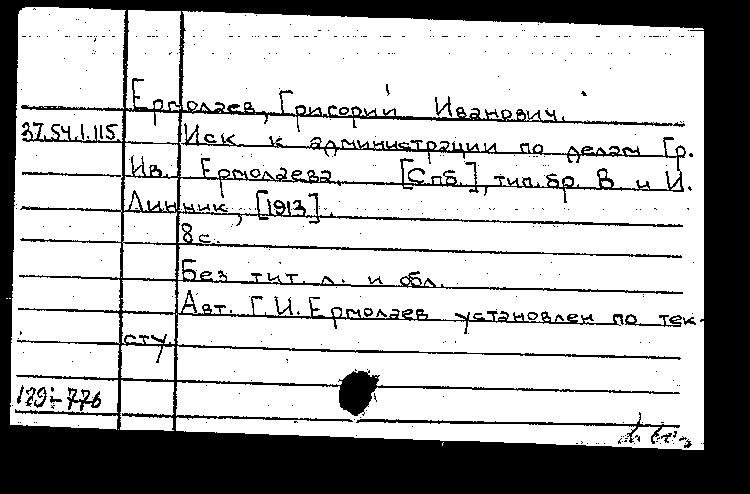 Ермолаев, Григорий Иванович.
37.54.1.115 Иск. к администрации по делам Гр.
Ив. Ермолаева. [Спб.], тип. бр. В. и И.
Линник, [1913].
8 с.
Без тит. л. и обл.
Авт. Г.И. Ермолаев установлен по тек-
сту
189-776